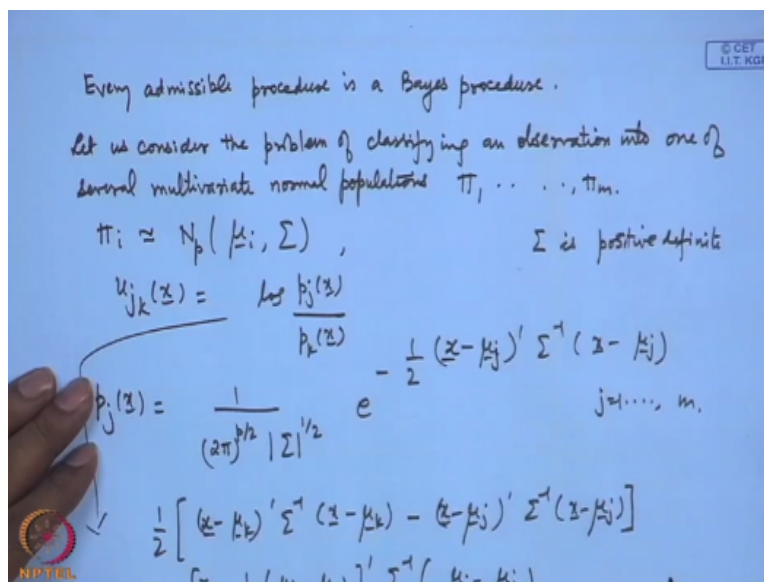 © CET
I.I.T. KGP
Every admissible procedure is a Bayes procedure.
Let us consider the problem of classifying an observation into one of
several multivariate normal populations Π₁, ....., Πₘ.
πᵢ ≃ Nₚ( μᵢ, Σ) , Σ is positive definite
uⱼₖ(x) = log pⱼ(x) / pₖ(x)
pⱼ(x) = 1 / (2π)^{p/2} |Σ|^{1/2} e^{- 1/2 (x-μⱼ)' Σ⁻¹ (x-μⱼ)} j=1...., m.
1/2 [ (x-μₖ)' Σ⁻¹ (x-μₖ) - (x-μⱼ)' Σ⁻¹ (x-μⱼ) ]
NPTEL